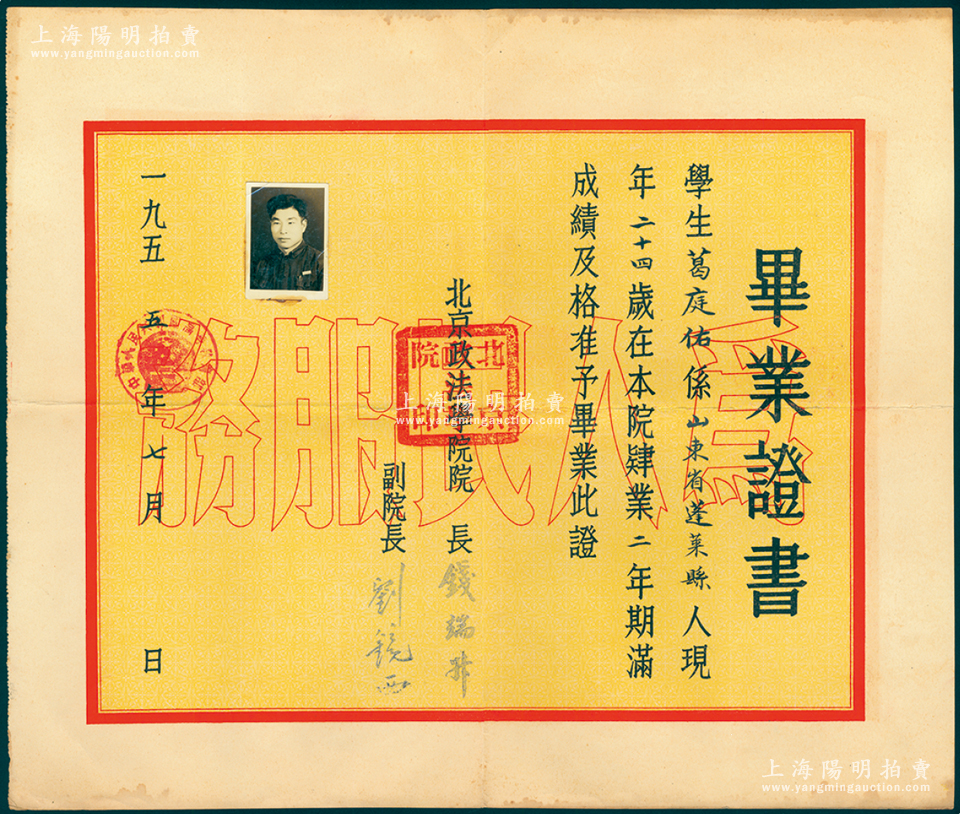 上海陽明拍賣
www.yangmingauction.com
畢業證書
學生葛庭佑係山東省蓬萊縣人現
年二十四歲在本院肄業二年期滿
成績及格准予畢業此證
北京政法學院院長錢端升
副院長劉鏡西
一九五五年七月 日
為人民服務
上海陽明拍賣
www.yangmingauction.com
上海陽明拍賣
www.yangmingauction.com